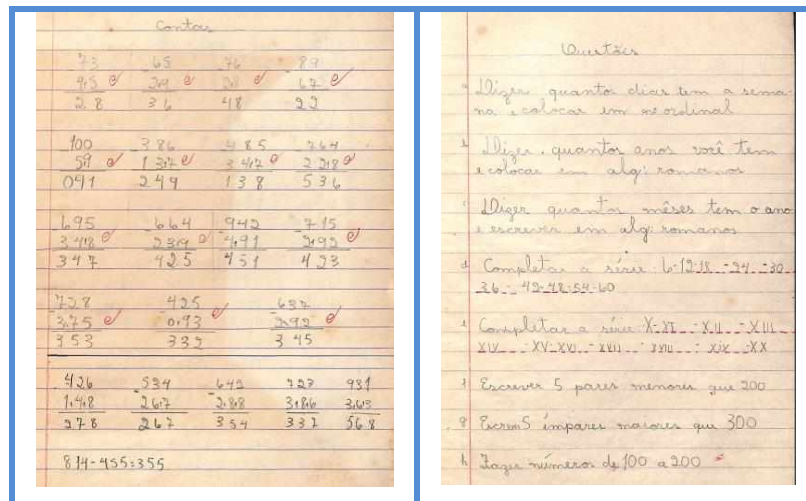 Contas
73 65 76 89
45 29 28 67
28 36 48 22
100 386 485 764
59 137 347 228
041 249 138 536
695 664 942 715
348 239 491 292
347 425 451 423
728 425 637
375 093 292
353 332 345
426 534 642 723 931
148 267 288 386 363
278 267 354 337 568
814-455=355
Questões
a Dizer quantos dias tem a sema-
na e colocar em nº ordinal
b Dizer quantos anos você tem
e colocar em alg: romanos
c Dizer quantos mêses tem o ano
e escrever em alg: romanos
d Completar a série: 6-12-18-24-30
36-42-48-54-60
e Completar a série X-XI-XII-XIII
XIV-XV-XVI-XVII-XVIII-XIX-XX
f Escrever 5 pares menores que 200
g Escrever 5 ímpares maiores que 300
h Fazer números de 100 a 200